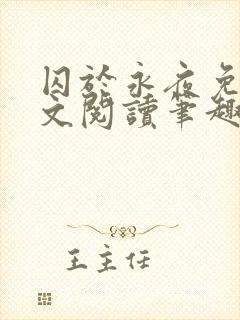 囚於永夜免
文閱讀筆趣
王主任